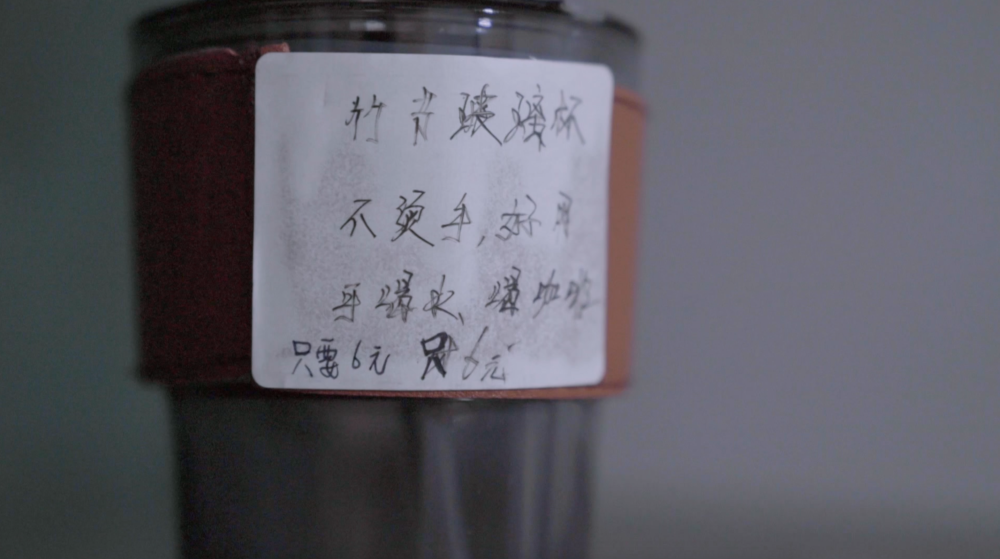 竹节玻璃杯
不烫手,好用
可爆水、爆咖啡
只要6元 只6元